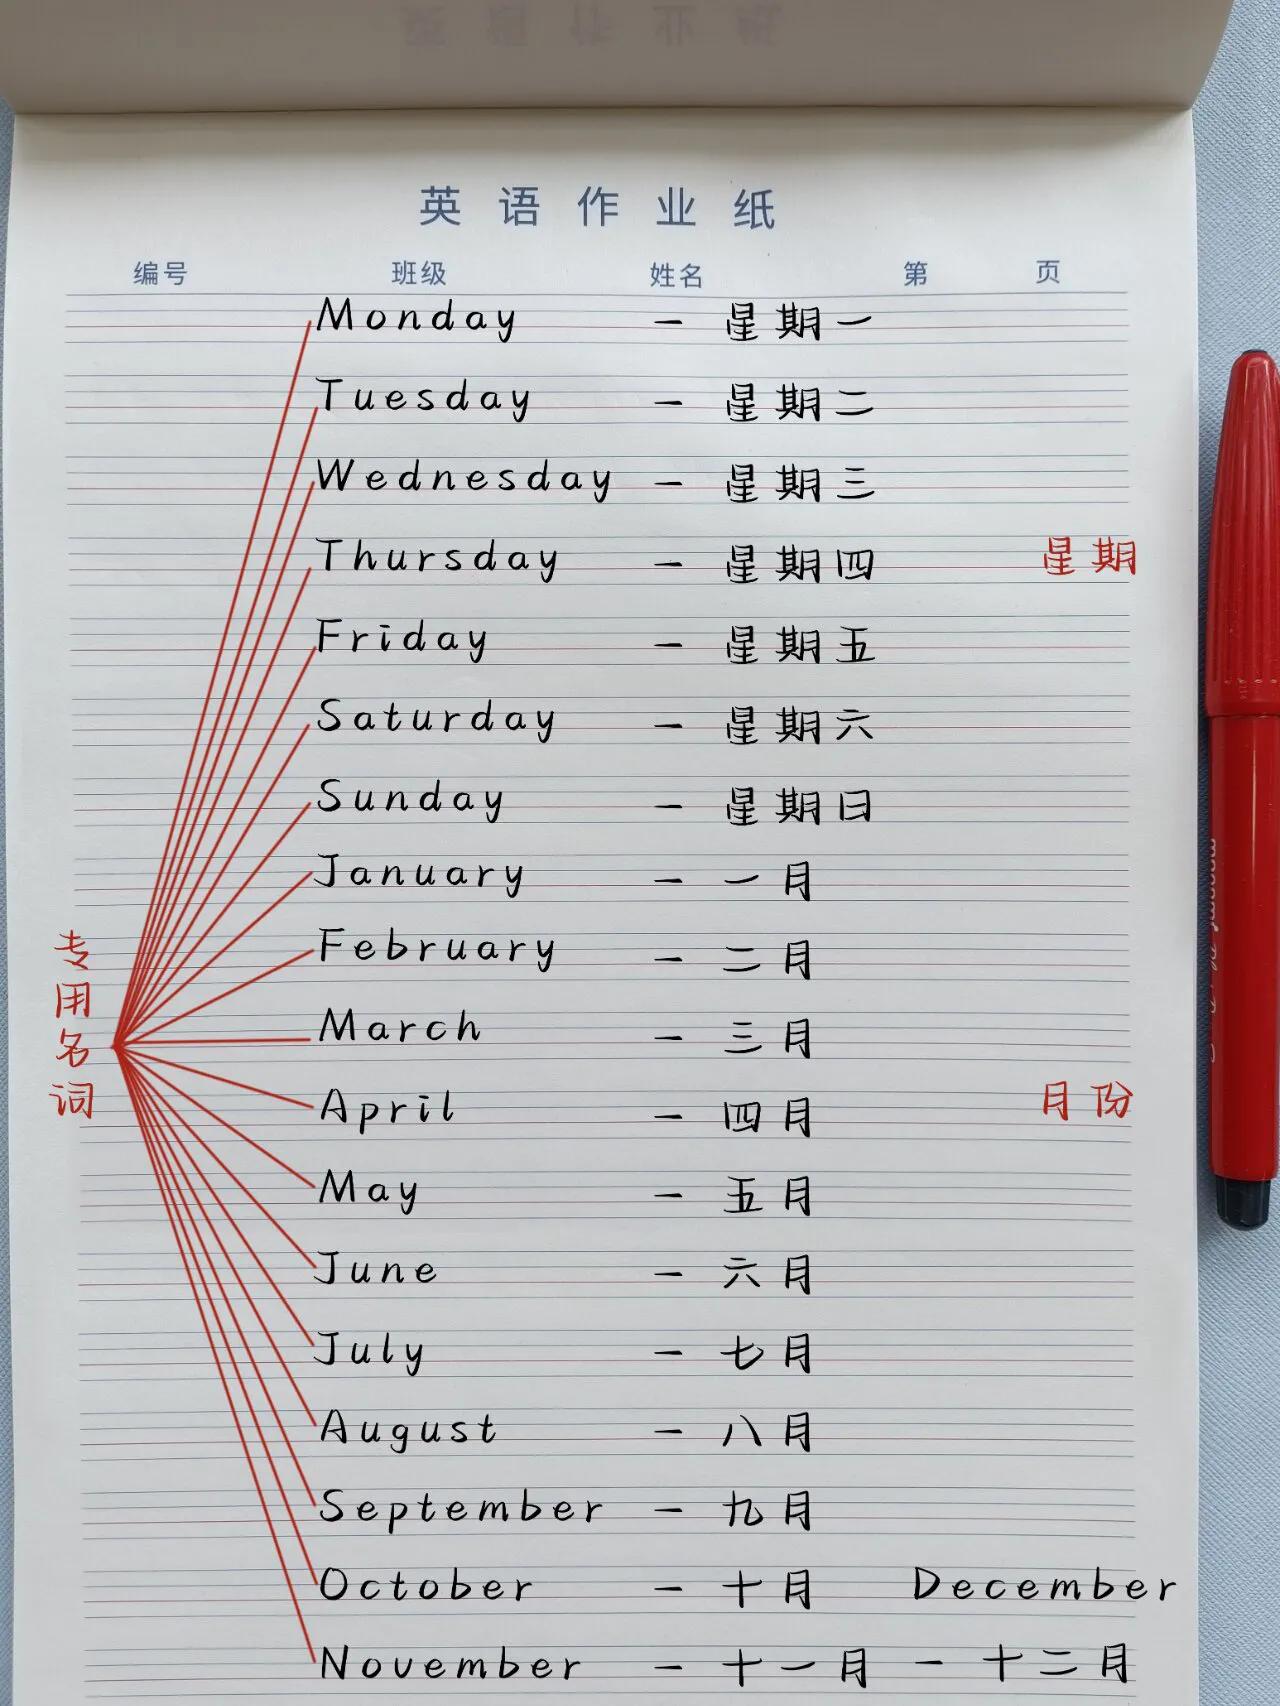 英语作业纸
编号 班级 姓名 第 页
Monday - 星期一
Tuesday - 星期二
Wednesday - 星期三
Thursday - 星期四 星期
Friday - 星期五
Saturday - 星期六
Sunday - 星期日
January - 一月
February - 二月
专用名词
March - 三月
April - 四月 月份
May - 五月
June - 六月
July - 七月
August - 八月
September - 九月
October - 十月 December
November - 十一月 - 十二月